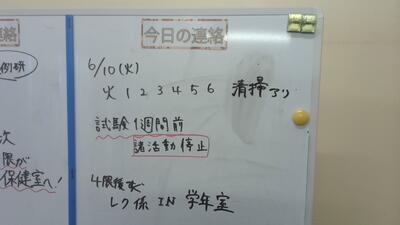 連絡
例研
次
限が
保健室へ!
今日の連絡
6/10(火)
火 1 2 3 4 5 6 清掃アリ
試験1週間前
諸活動停止
4限後すぐ
レク係 IN 学年室